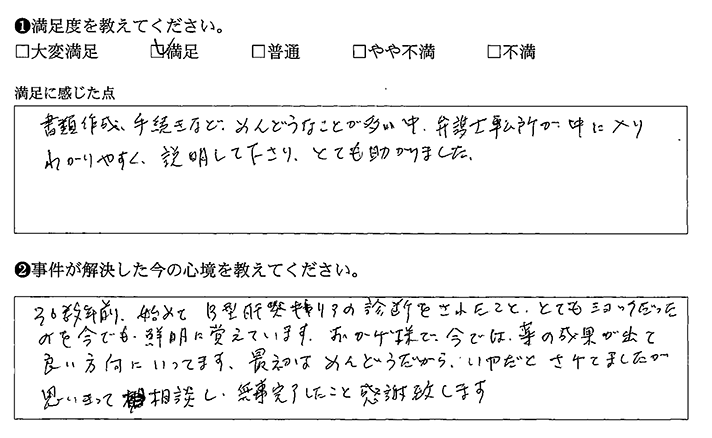 ❶満足度を教えてください。
□大変満足 □満足 □普通 □やや不満 □不満
満足に感じた点
書類作成、手続きなど、めんどうなことが多い中、弁護士事ム所が、中に入り
わかりやすく、説明して下さり、とても助かりました。
❷事件が解決した今の心境を教えてください。
30数年前、始めて B型肝炎キャリアの診断をされたこと、とてもショックだった
のを今でも、鮮明に覚えています。おかげ様で、今では、薬の成果が出て
良い方向にいってます。最初は めんどうだから、いやだと さけてましたが
思いきって 相談し、無事完了したこと 感謝致します